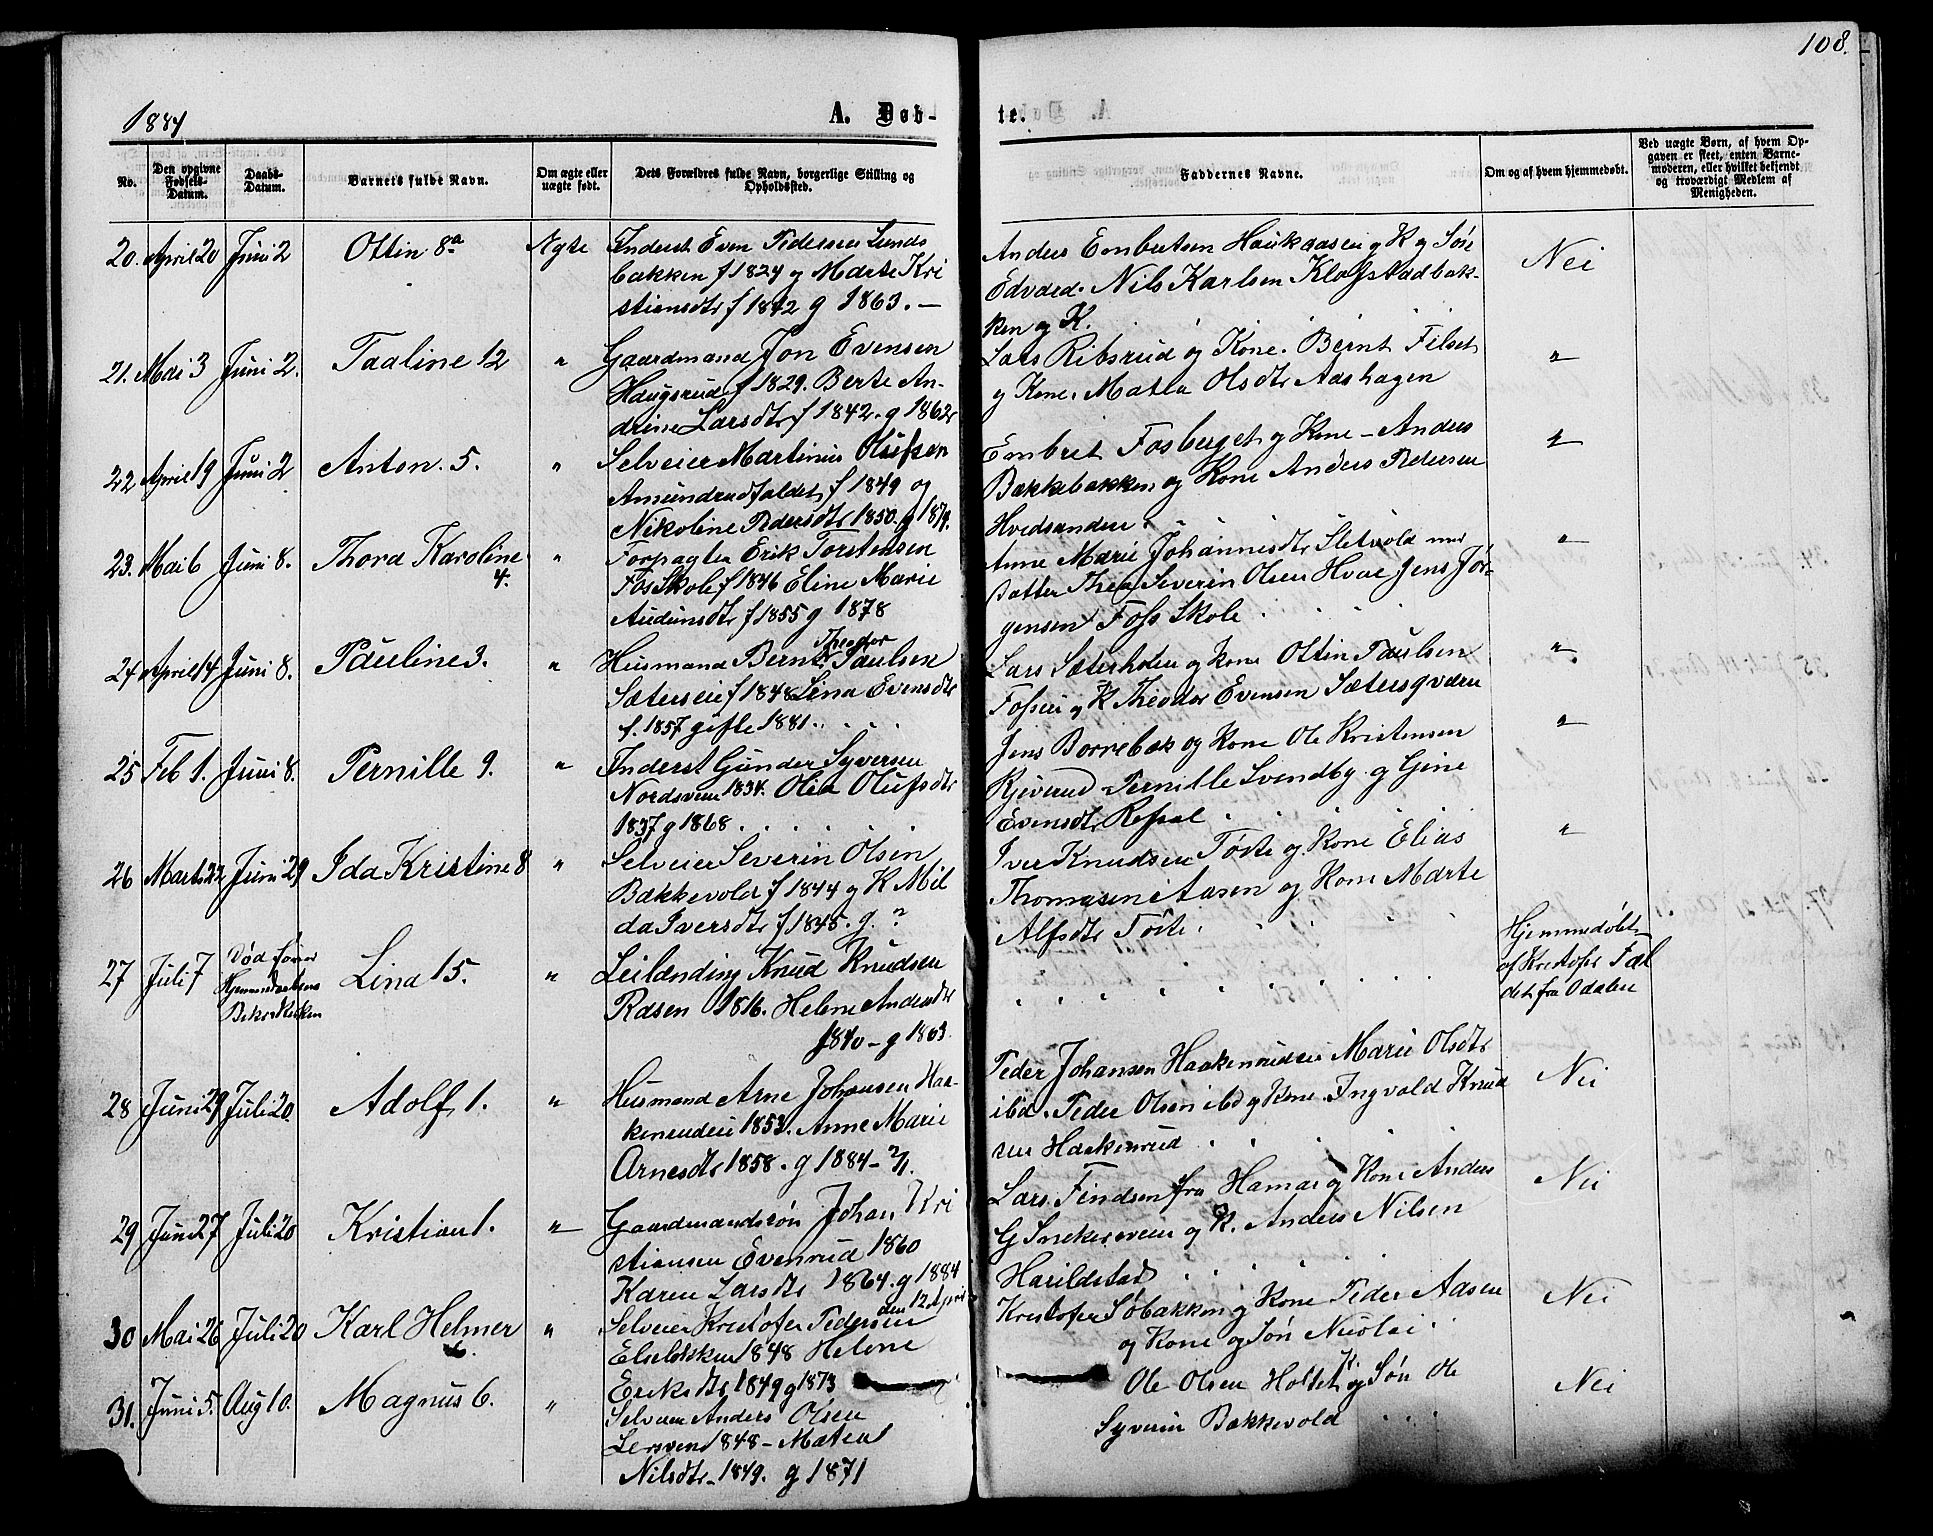 108.
1884
A. Døb-
te.
No.
Den opgivne Fødsels-Datum.
Daabs-Datum.
Barnets fulde Navn.
Om ægte eller uægte født.
Dets Forældres fulde Navn, borgerlige Stilling og Opholdssted.
Faddernes Navne.
Om og af hvem hjemmedøbt.
Ved uægte Børn, af hvem Opgaven er skeet, enten Barnemoderen, eller hvilket bekjendt og troværdigt Medlem af Menigheden.
20. April 20 Juni 2 Ottin 8a Ægte Inderst Even Pedersen Lunds
bakken f 1824 og Marte Kri
stiansdtr f 1842 g 1863. —
Anders Embretsen Haukaasen g K og Søn
Edvard. Nils Karlsen Klofstadbak-
ken og K.
Nei
21. Mai 3 Juni 2. Taaline 12 " Gaardmand Jon Evensen
Haugsrud f 1829. Berte An-
drine Larsdtr f 1842. g 1862
Lars Ribsrud og Kone. Bernt Filset
g Kone. Matea Olsdtr Aashagen
"
22 April 19 Juni 2 Anton. 5. " Selveier Martinus Olufsen
Amundrudfaldet f 1849 og
Nikoline Pedersdtr 1850. g 1874.
Embret Fosberget og Kone - Anders
Bækkebakken og Kone Anders Pedersen
Hvedsanden.
"
23. Mai 6 Juni 8. Thora Karoline
4.
" Forpagter Erik Torstensen
Fos Skole f 1846 Eline Marie
Audunsdtr f 1855 g 1878
Anne Marie Johannesdtr Sletvold med
Datter Thea Severin Olsen Hvae Jens Jør-
gensen Foss Skole
"
24 April 14 Juni 8. Pauline 3. " Husmand Bernt Theodor Paulsen
Sæterseie f 1848 Lina Evensdtr
f. 1857 gifte 1881.
Lars Sæterholen og Kone Ottin Paulsen
Fossen og K Theodor Evensen Sætersqværn
"
25 Feb 1. Juni 8. Pernille 9. " Inderst Gunder Syversen
Nordsveen 1834. Olia Olufsdtr
1837 g 1868
Jens Borrebæk og Kone Ole Kristensen
Kjverud Pernille Svendby g Gine
Evensdtr Refsal
"
26 Marts 22 Juni 29 Ida Kristine 8 " Selveier Severin Olsen
Bakkevold f 1844 g K Mil
da Iversdtr f 1845. g. ?
Iver Knudsen Tøste og Kone Elias
Thomasen Aasen og Kone Marte
Alfsdtr Tøste.
"
27 Juli 7 Død før
Hjemmedaabens
Bekræftelsen
Lina 15. " Leilænding Knud Knudsen
Rasen 1816. Helene Andersdtr
1840 - g 1863
Hjemmedøbt
af Kristofer Fal
det fra Odalen
28 Juni 29 Juli 20. Adolf 1. " Husmand Arne Johansen Haa-
kenrudeie 1853. Anne Marie
Arnesdtr 1858. g 1884 - 2/1.
Peder Johansen Haakenrudeie Marie Olsdtr
ibid. Peder Olsen ibd g Kone. Ingvald Knud
sen Haakenrud
Nei
29 Juni 27 Juli 20 Kristian 1. " Gaardmandssøn Johan Kri
stiansen Evenrud 1860
Karen Larsdtr 1864. g 1884
den 12 April
Lars. Findsen fra Hamar og Kone Anders
G Snekersveen og K. Anders Nilsen
Harildstad
Nei
30 Mai 26 Juli 20 Karl Helmer
6.
" Selveier Kristofer Pedersen
1848 Helene
Eriksdtr 1849 g 1873
Kristofer Søbakken g Kone Peder Aasen
og Kone og Søn Nicolai.
Nei
31. Juni 5. Aug 10. Magnus 6. " Selveier Anders Olsen
Lersveen 1848 - Matea
Nilsdtr 1849. g 1871
Ole Olsen Holtet K og Søn Ole
Syverin Bakkevold
Nei